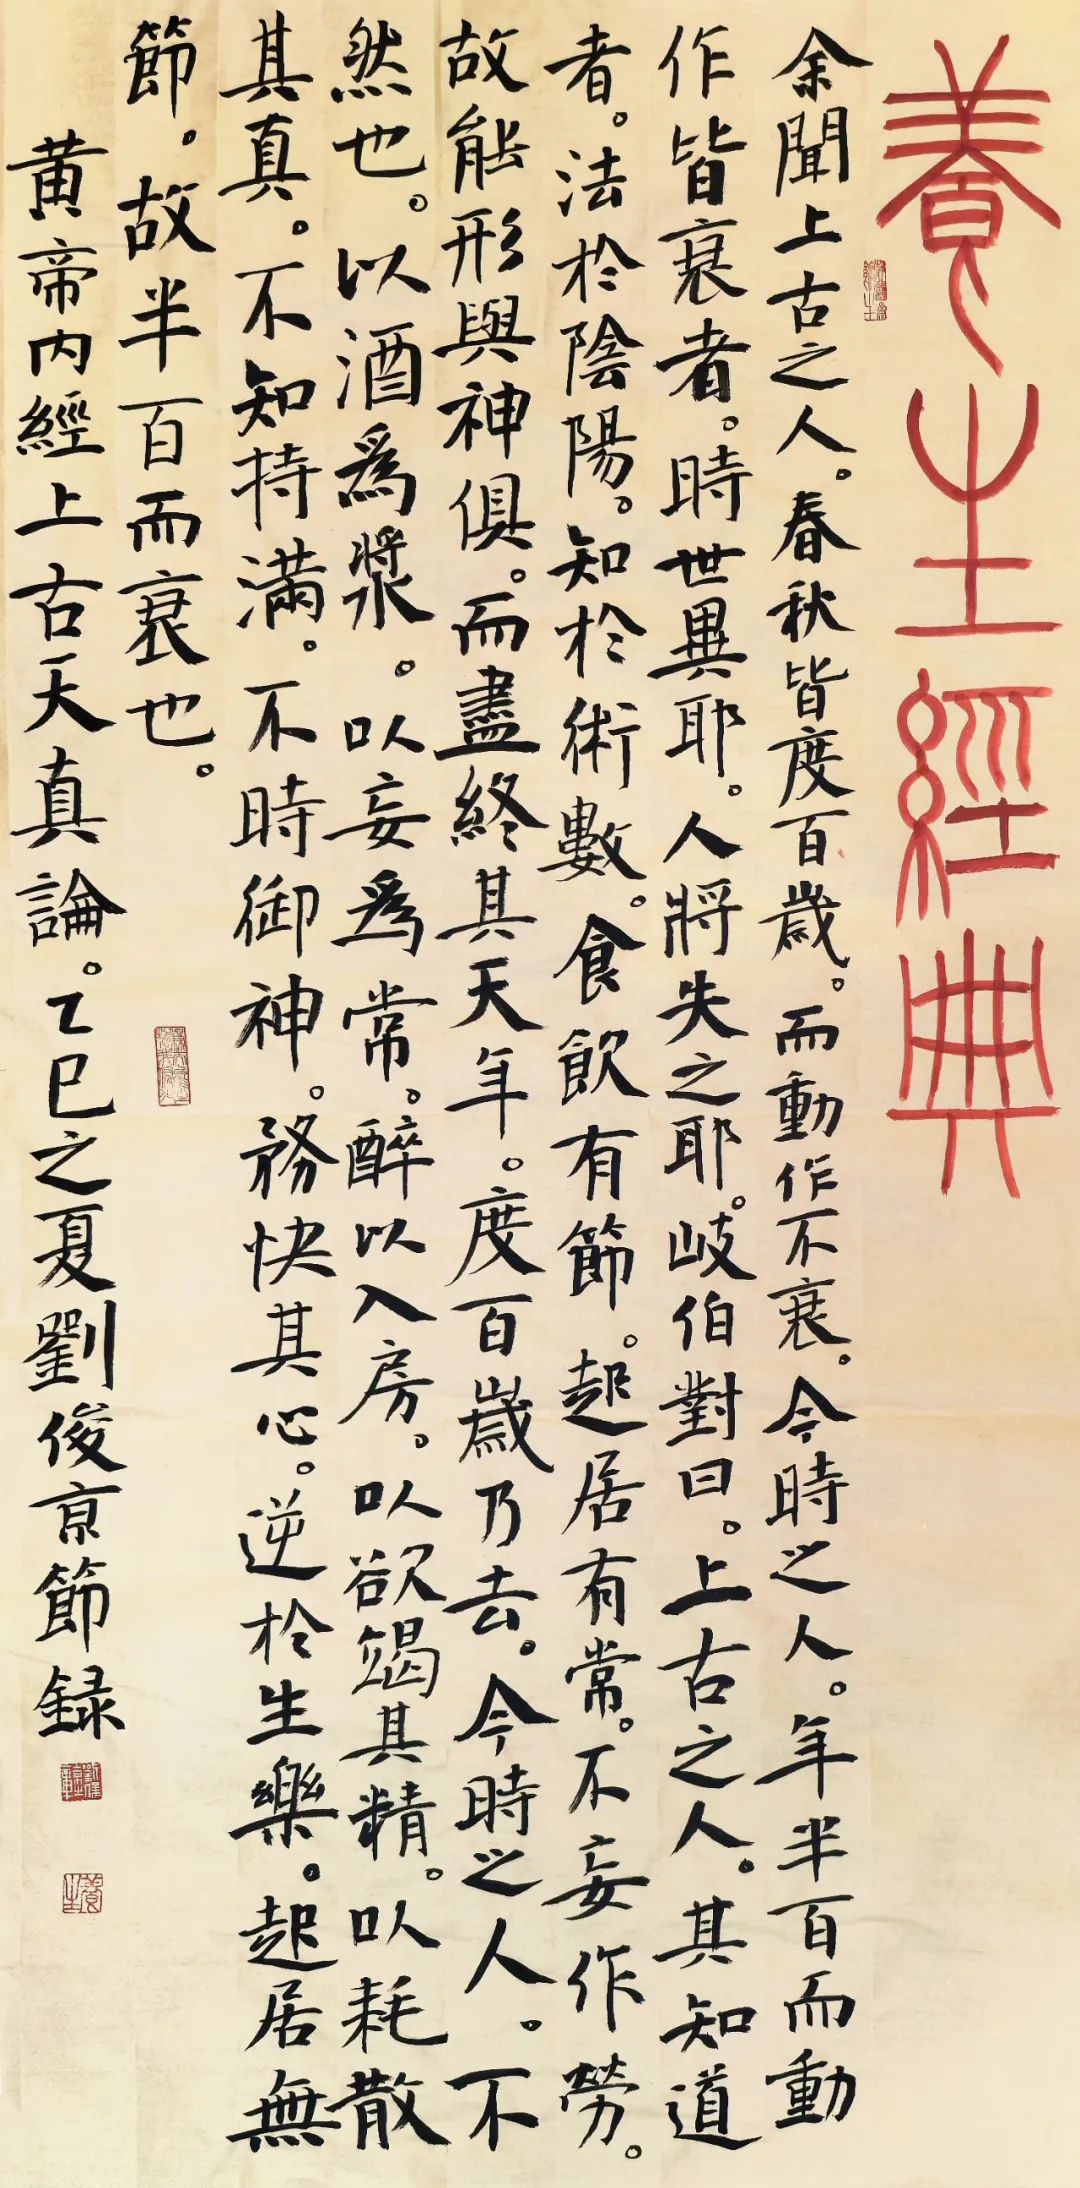 養生經典
余聞上古之人。春秋皆度百歲。而動作不衰。今時之人。年半百而動
作皆衰者。時世異耶。人將失之耶。岐伯對曰。上古之人。其知道
者。法於陰陽。知於術數。食飲有節。起居有常。不妄作勞。
故能形與神俱。而盡終其天年。度百歲乃去。今時之人。不
然也。以酒爲漿。以妄爲常。醉以入房。以欲竭其精。以耗散
其真。不知持滿。不時御神。務快其心。逆於生樂。起居無
節。故半百而衰也。
黄帝内經上古天真論。乙巳之夏劉俊京節録